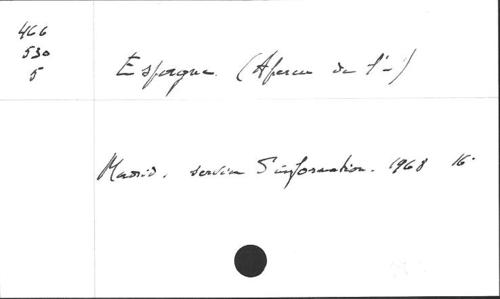 466
530
5
Espagne. (Aperçu de l'-)
Madrid. service d'information. 1968 16°